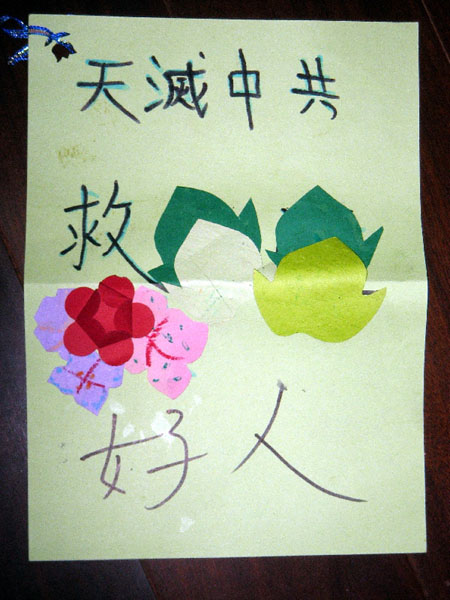 天滅中共
救
好人